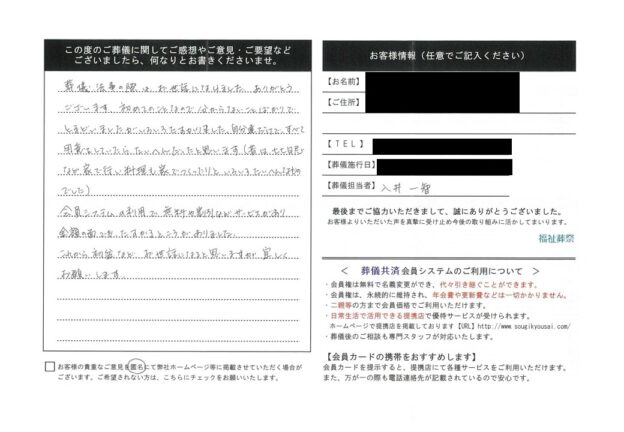 この度のご葬儀に関してご感想やご意見・ご要望など
ございましたら、何なりとお書きくださいませ。
葬儀、法事の際は、お世話になりました。ありがとう
ございます。初めてのことなので分からないことばかりで
とまどいましたが、いろいろたすかりました。自分達だけで、すべて
用意をしていたら、たいへんだったと思います(昔は七七日
など家で行い料理も家でつくったりと、いろいろたいへん
でした)
会員システムの利用で、無料や割引などサービスがあり
金額の面でもたすかるところがありました。
これから初盆など、お世話になると思いますが宜しく
お願いします。
お客様の貴重なご意見を匿名にて弊社ホームページ等に掲載させていただく場合が
ございます。ご希望されない方は、こちらにチェックをお願いいたします。
お客様情報(任意でご記入ください)
【お名前】
【ご住所】
【TEL】
【葬儀施行日】
【葬儀担当者】 入井 一智
最後までご協力いただきまして、誠にありがとうございました。
お客様よりいただいた声を真摯に受け止め今後の取り組みに活かしてまいります。
福祉葬祭
< 葬儀共済会員システムのご利用について >
・会員権は無料で名義変更ができ、代々引き継ぐことができます。
・会員権は、永続的に維持され、年会費や更新費などは一切かかりません。
・二親等の方まで会員価格でご利用いただけます。
・日常生活で活用できる提携店で優待サービスが受けられます。
ホームページで提携店を掲載しております【URL】http://www.sougikyousai.com/
・葬儀後のご相談も専門スタッフが対応いたします。
【会員カードの携帯をおすすめします】
会員カードを提示すると、提携店にて各種サービスをご利用いただけます。
また、万が一の際も電話連絡先が記載されているので安心です。